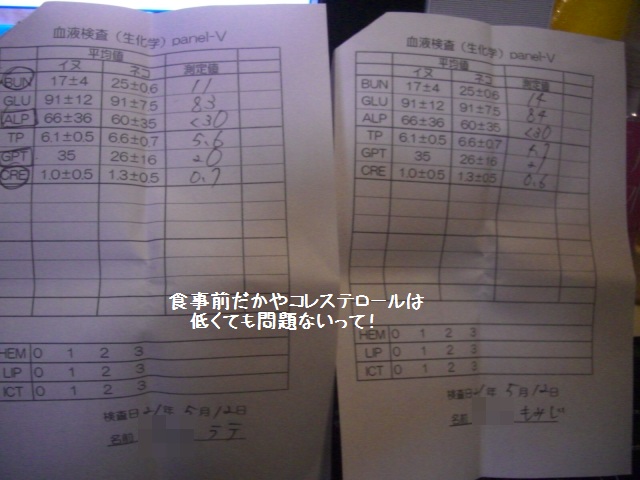 血液検査（生化学）panel-V
平均値
イヌ ネコ 測定値
BUN 17±4 25±0.6 11
GLU 91±12 91±7.5 83
ALP 66±36 60±35 <30
TP 6.1±0.5 6.6±0.7 5.6
GPT 35 26±16
CRE 1.0±0.5 1.3±0.5 0.7
HEM 0 1 2 3
LIP 0 1 2 3
ICT 0 1 2 3
検査日 21年 5月 12日
名前 ララ
血液検査（生化学）panel-V
平均値
イヌ ネコ 測定値
BUN 17±4 25±0.6 14
GLU 91±12 91±7.5 84
ALP 66±36 60±35 <30
TP 6.1±0.5 6.6±0.7
GPT 35 26±16
CRE 1.0±0.5 1.3±0.5 0.6
HEM 0 1 2 3
LIP 0 1 2 3
ICT 0 1 2 3
検査日 21年 5月 12日
名前
食事前だかやコレステロールは
低くても問題ないって!